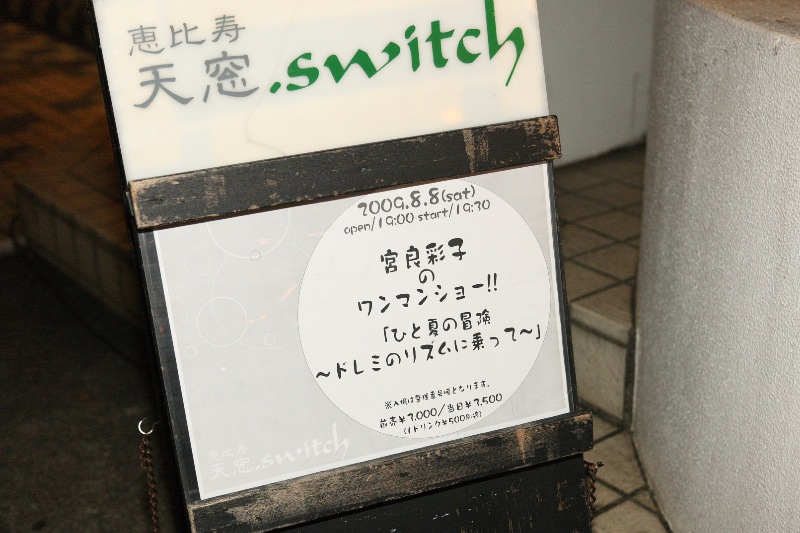 恵比寿
天窓.switch
2009.8.8(sat)
open/19:00 start/19:30
宮良彩子
の
ワンマンショー!!
「ひと夏の冒険
～ドレミのリズムに乗って～」
※入場は整理番号順となります。
前売¥3,000/当日¥3,500
(1ドリンク¥500別途)
恵比寿
天窓.switch